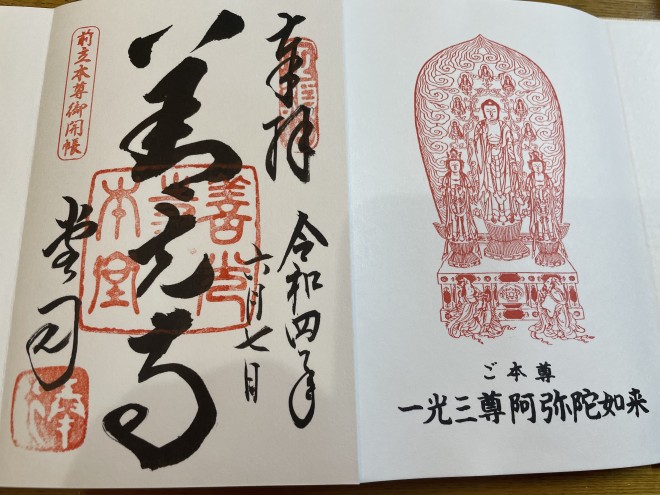 奉拝
令和四年
六月七日
善光寺
善光寺本堂
前立本尊御開帳
堂司
ご本尊
一光三尊阿弥陀如来